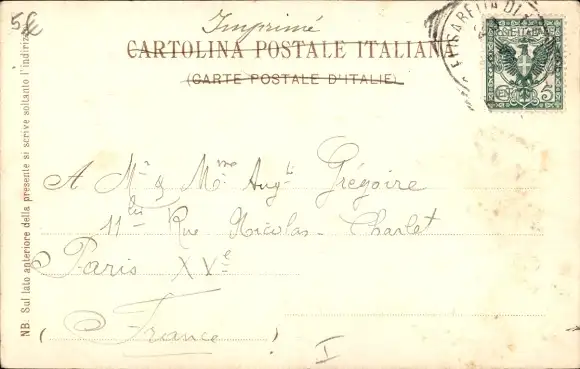 5€
Imprimé
CARTOLINA POSTALE ITALIANA
(CARTE POSTALE D'ITALIE)
NB. Sul lato anteriore della presente si scrive soltanto l'indirizzo
A Mr & Mme Augti Grégoire
11bis Rue Nicolas-Charlet
Paris XVe
(France)
I